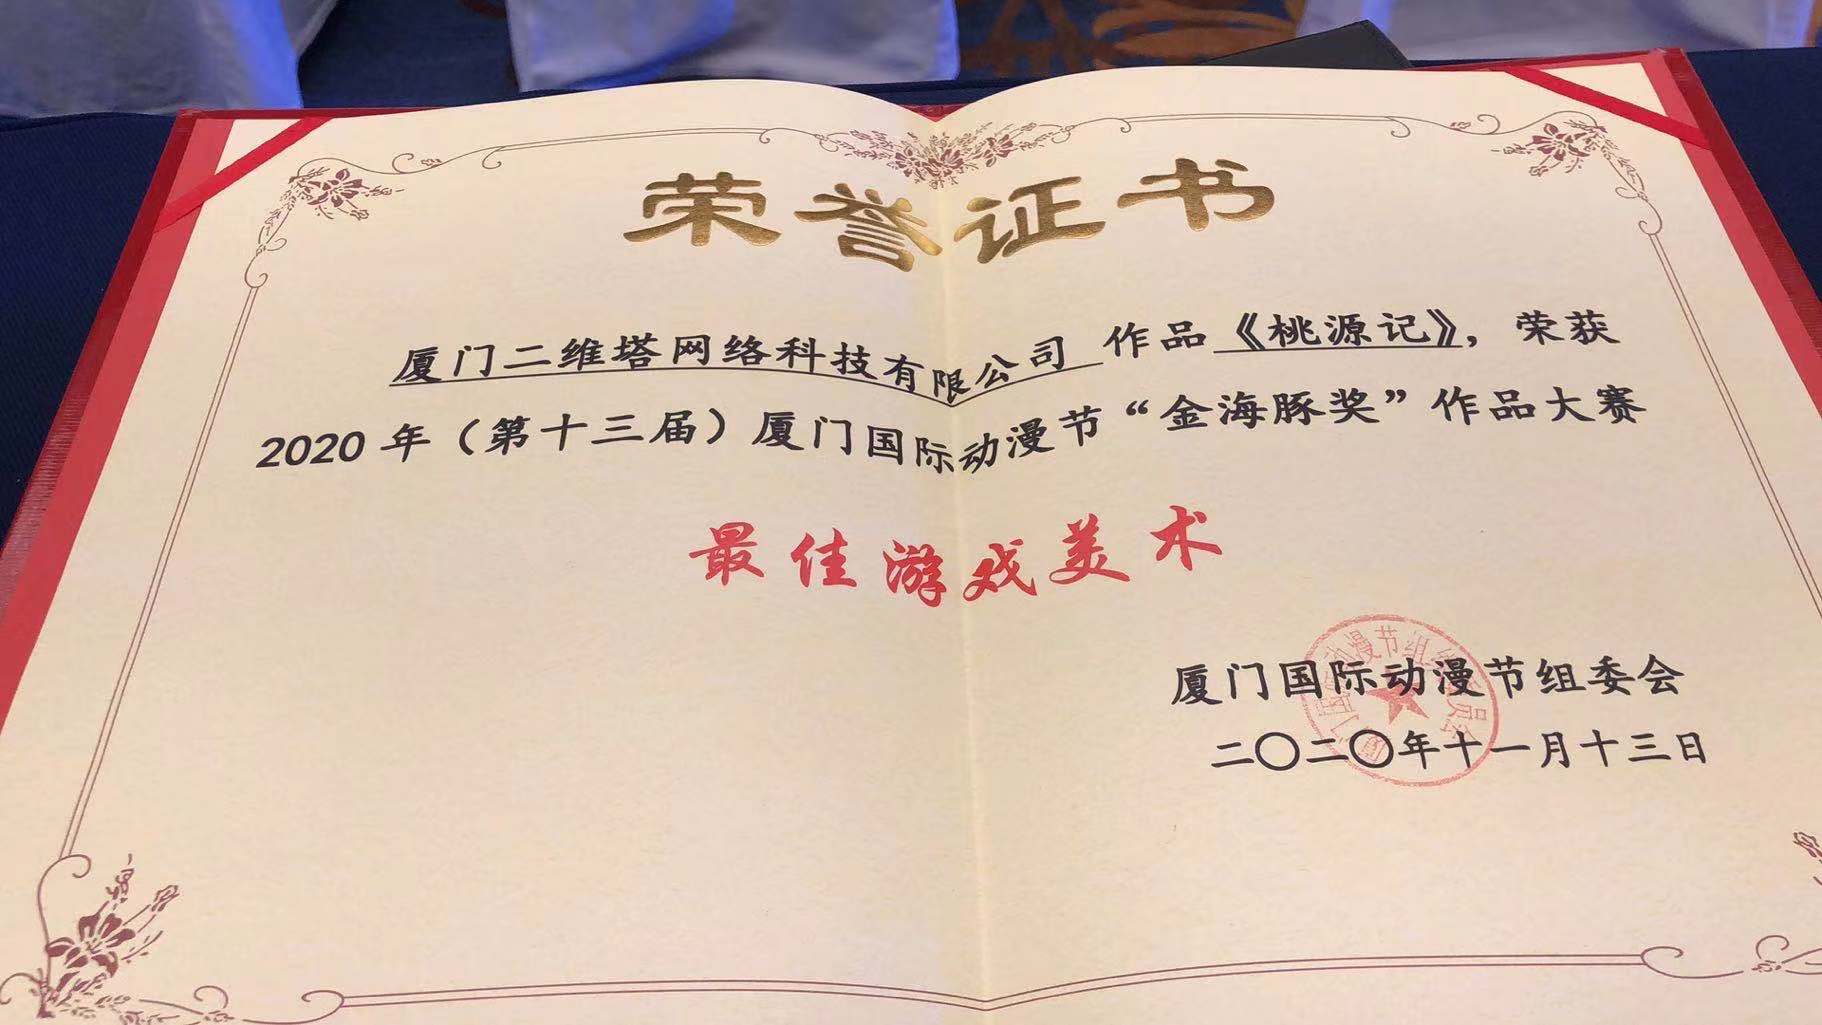 荣誉证书
厦门二维塔网络科技有限公司 作品《桃源记》，荣获
2020 年（第十三届）厦门国际动漫节“金海豚奖”作品大赛
最佳游戏美术
厦门国际动漫节组委会
二〇二〇年十一月十三日